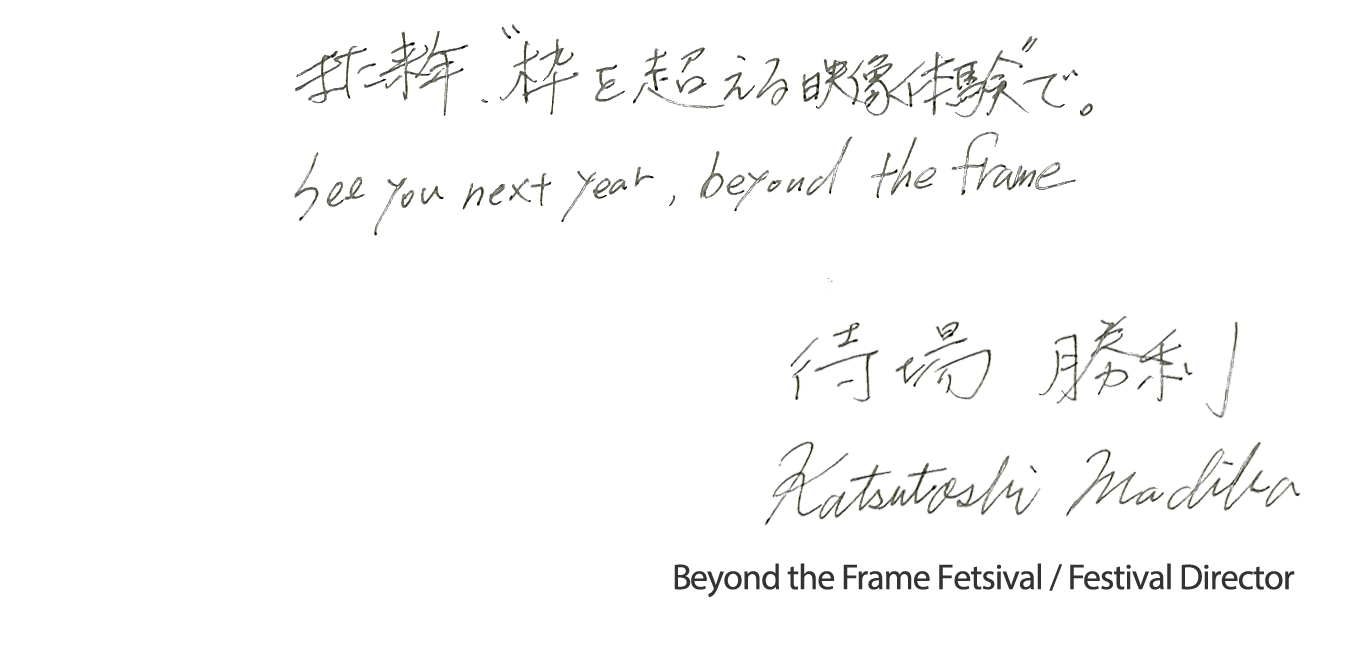 また来年、“枠を超える映像体験”で。
See you next year, beyond the frame
待場 勝利
Katsutoshi Madiba
Beyond the Frame Fetsival / Festival Director